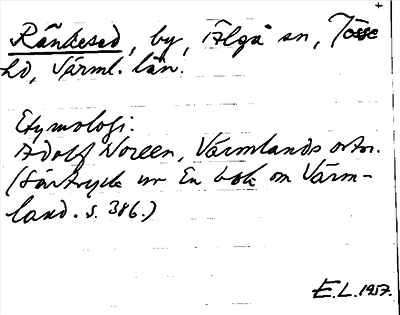 Ränkesed, by, Älgå sn, Jösse
hd, Värml. län.
Etymologi:
Adolf Noreen, Värmlands ortn.
(Särtryck ur En bok om Värm-
land. s. 386.)
E.L. 1957.